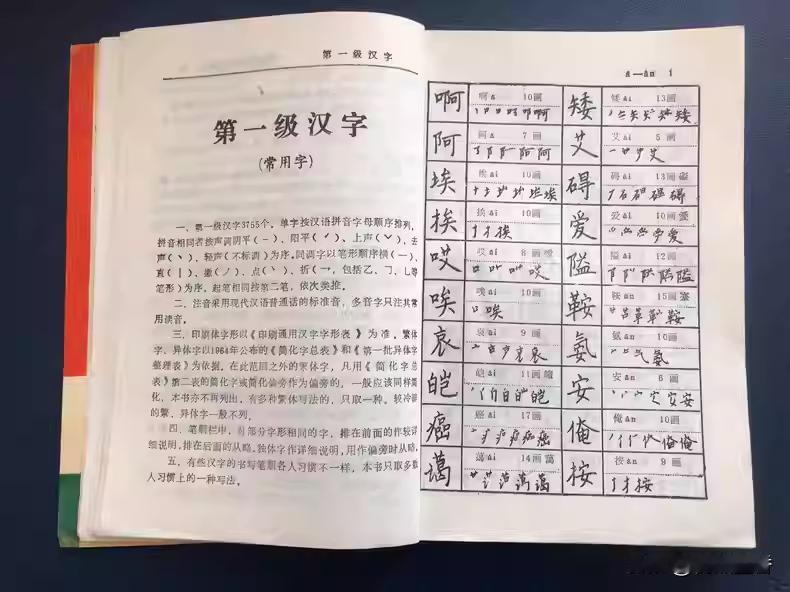 第一级汉字
第一级汉字
(常用字)
一、第一级汉字3755个。单字按汉语拼音字母顺序排列,
拼音相同者按声调阴平(ー)、阳平(ˊ)、上声(ˇ)、去
声(ˋ)、轻声(不标调)为序。同调字以笔形顺序横(一)、
直(丨)、撇(ノ)、点(丶)、折(乛,包括乙、㇆、乚等
笔形)为序,起笔相同按第二笔,依次类推。
二、注音采用现代汉语普通话的标准音,多音字只注其常
用读音。
三、印刷体字形以《印刷通用汉字字形表》为准。繁体
字、异体字以1964年公布的《简化字总表》和《第一批异体字
整理表》为依据。在此范围之外的繁体字,只用《简化字总
表》第二表的简化字或简化偏旁作为偏旁的,一般应该同样简
化,本书亦不再列出,有多种繁体写法的,只取一种。较冷僻
的繁、异体字一般不列。
四、笔顺栏中,有部分字形相同的字,排在前面的作较详
细说明,排在后面的从略。独体字作详细说明,用作偏旁时从略。
五、有些汉字的书写笔顺各人习惯不一样,本书只取多数
人习惯上的一种写法。
a—ān 1
啊 啊a 10画
矮 矮ǎi 13画
阿 阿a 7画
艾 艾ài 5画
埃 埃āi 10画
碍 碍ài 13画 礙
挨 挨āi 10画
爱 爱ài 10画 愛
哎 哎āi 8画
隘 隘ài 12画
唉 唉āi 10画
鞍 鞍ān 15画
哀 哀āi 9画
氨 氨ān 10画
皑 皑ái 11画 皚
安 安ān 6画
癌 癌ái 17画
俺 俺ǎn 10画
蔼 蔼ǎi 14画 藹
按 按àn 9画